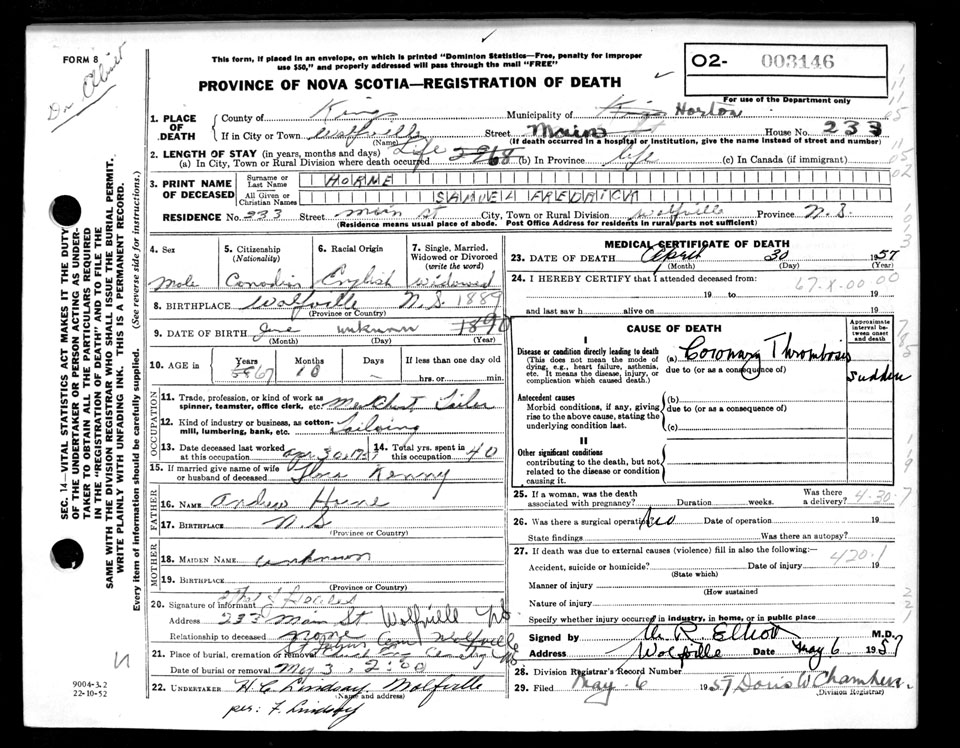 FORM 8
Dr Elliott
This form, if placed in an envelope, on which is printed "Dominion Statistics—Free, penalty for improper
use $50," and properly addressed will pass through the mail "FREE"
PROVINCE OF NOVA SCOTIA—REGISTRATION OF DEATH
O2- 003146
For use of the Department only
1. PLACE OF DEATH
County of Kings Municipality of Kings Horton
If in City or Town Wolfville (Name) Street Main St House No. 233
(If death occurred in a hospital or institution, give the name instead of street and number)
2. LENGTH OF STAY (in years, months and days) Life
(a) In City, Town or Rural Division where death occurred 68 (b) In Province life (c) In Canada (if immigrant)
3. PRINT NAME OF DECEASED
Surname or Last Name HORNE
All Given or Christian Names SAMUEL FREDRICK
RESIDENCE No. 233 Street main st City, Town or Rural Division Wolfville Province N.S.
(Residence means usual place of abode. Post Office Address for residents in rural parts not sufficient)
4. Sex Male
5. Citizenship (Nationality) Canadian
6. Racial Origin English
7. Single, Married, Widowed or Divorced (write the word) Widowed
8. BIRTHPLACE Wolfville N.S. 1889
(Province or Country)
9. DATE OF BIRTH June unknown 1890
(Month) (Day) (Year)
10. AGE in Years 67 Months 10 Days — If less than one day old
hrs. or min.
OCCUPATION
11. Trade, profession, or kind of work as spinner, teamster, office clerk, etc. Merchant Tailor
12. Kind of industry or business, as cotton-mill, lumbering, bank, etc. Tailoring
13. Date deceased last worked at this occupation Apr 30 1957 14. Total yrs. spent in this occupation 40
15. If married give name of wife or husband of deceased Kenny
FATHER
16. NAME Andrew Horne
17. BIRTHPLACE N.S
(Province or Country)
MOTHER
18. MAIDEN NAME unknown
19. BIRTHPLACE
(Province or Country)
20. Signature of informant
Address 233 Main St Wolfville NS
Relationship to deceased none
21. Place of burial, cremation or removal St Johns Church Cemetery Wolfville NS
Date of burial or removal May 3 2:00
22. UNDERTAKER H C Lindsay Wolfville
(Name and address)
per: F. Lindsay
MEDICAL CERTIFICATE OF DEATH
23. DATE OF DEATH April 30 1957
(Month) (Day) (Year)
24. I HEREBY CERTIFY that I attended deceased from:
67-X-00-00
19 to 19
and last saw h alive on 19
CAUSE OF DEATH
Approximate interval between onset and death
I
Disease or condition directly leading to death
(This does not mean the mode of dying, e.g., heart failure, asthenia, etc. It means the disease, injury, or complication which caused death.)
(a) Coronary Thrombosis
due to (or as a consequence of)
Sudden
Antecedent causes
Morbid conditions, if any, giving rise to the above cause, stating the underlying condition last.
(b)
due to (or as a consequence of)
(c)
II
Other significant conditions
contributing to the death, but not related to the disease or condition causing it.
25. If a woman, was the death associated with pregnancy? Duration weeks. Was there a delivery? 4-30-7
26. Was there a surgical operation? No Date of operation 19
State findings Was there an autopsy?
27. If death was due to external causes (violence) fill in also the following:—
420.1
Accident, suicide or homicide? Date of injury 19
(State which)
Manner of injury
(How sustained
Nature of injury
Specify whether injury occurred in industry, in home, or in public place
Signed by R Elliott M.D.
Address Wolfville Date May 6 1957
28. Division Registrar's Record Number
29. Filed May 6 1957 Doris W Chambers
(Division Registrar)
SEC. 14—VITAL STATISTICS ACT MAKES IT THE DUTY
OF THE UNDERTAKER OR PERSON ACTING AS UNDER-
TAKER TO OBTAIN ALL THE PARTICULARS REQUIRED
IN THE "REGISTRATION OF DEATH" AND TO FILE THE
SAME WITH THE DIVISION REGISTRAR WHO SHALL ISSUE THE BURIAL PERMIT.
WRITE PLAINLY WITH UNFADING INK. THIS IS A PERMANENT RECORD.
Every item of information should be carefully supplied. (See reverse side for instructions.)
9004-3.2
22-10-52